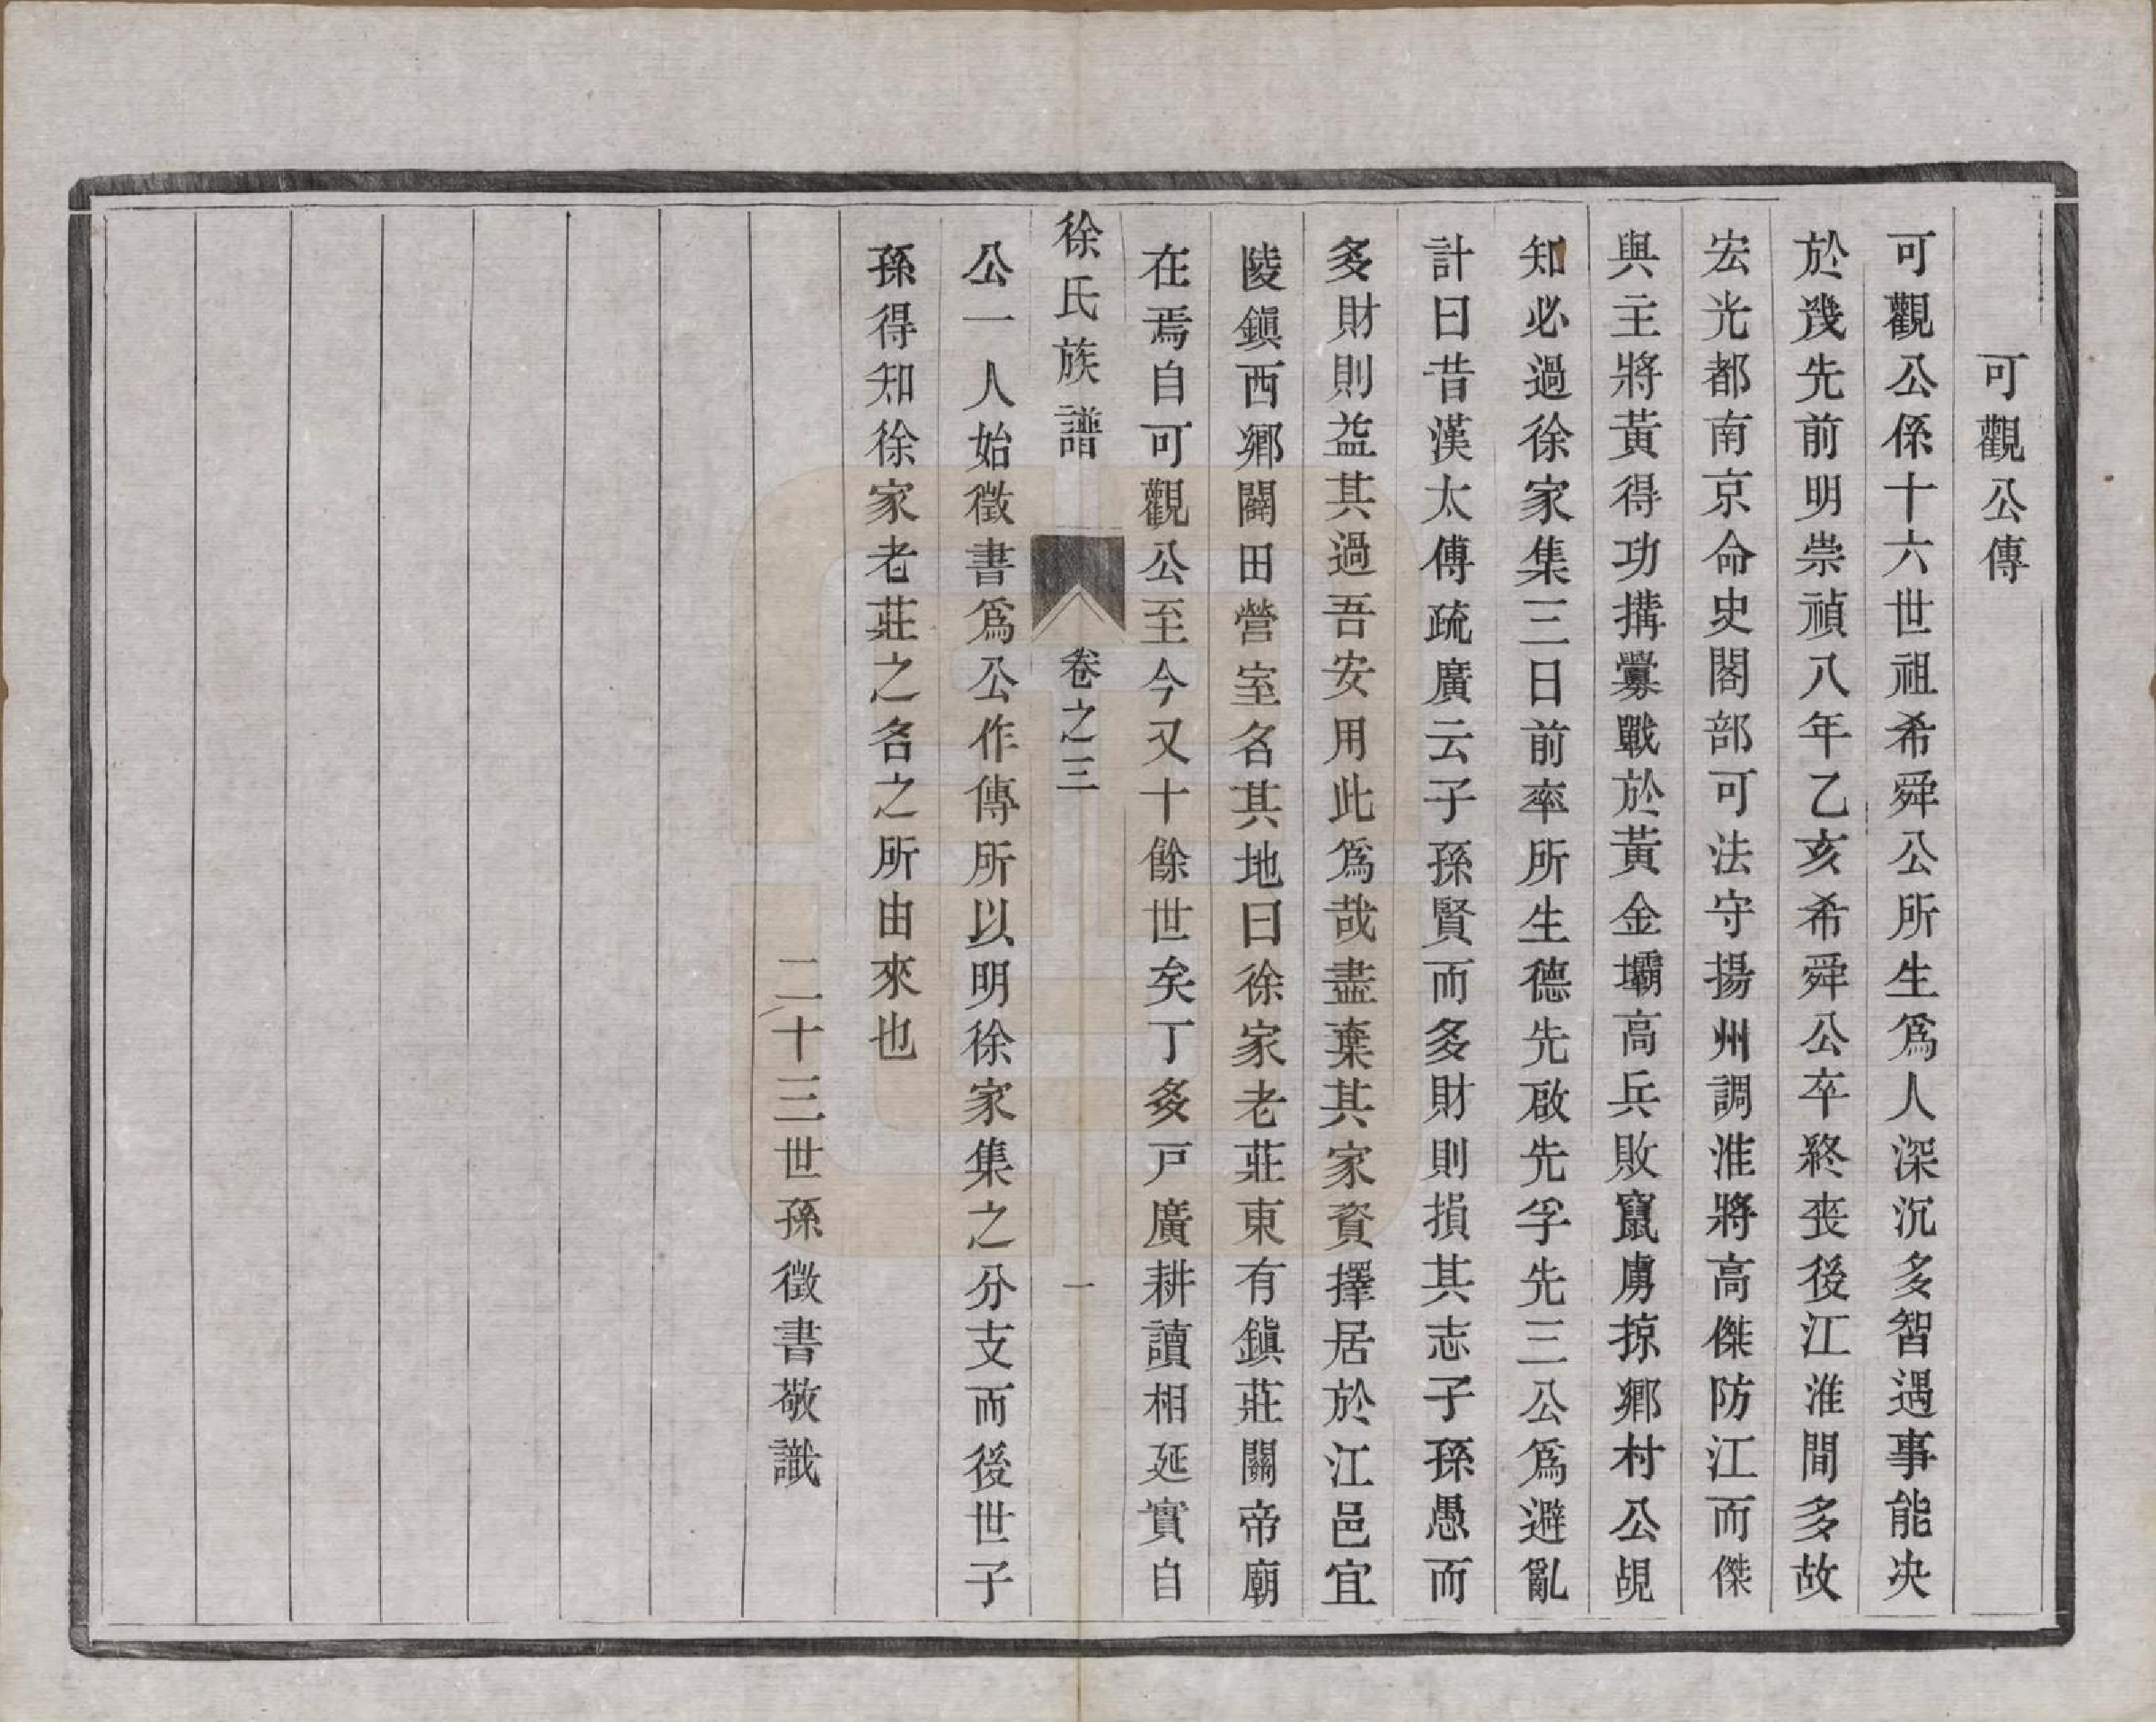 可觀公傳
可觀公係十六世祖希舜公所生爲人深沉多智遇事能决
於幾先前明崇禎八年乙亥希舜公卒終喪後江淮間多故
宏光都南京命史閣部可法守揚州調淮將高傑防江而傑
與主將黃得功搆釁戰於黃金壩高兵敗竄虜掠鄉村公覘
知必過徐家集三日前率所生德先啟先孚先三公爲避亂
計曰昔漢太傅疏廣云子孫賢而多財則損其志子孫愚而
多財則益其過吾安用此爲哉盡棄其家資擇居於江邑宜
陵鎭西鄉闢田營室名其地曰徐家老莊東有鎭莊關帝廟
在焉自可觀公至今又十餘世矣丁多戸廣耕讀相延實自
徐氏族譜
卷之三
一
公一人始徵書爲公作傳所以明徐家集之分支而後世子
孫得知徐家老莊之名之所由來也
二十三世孫徵書敬識